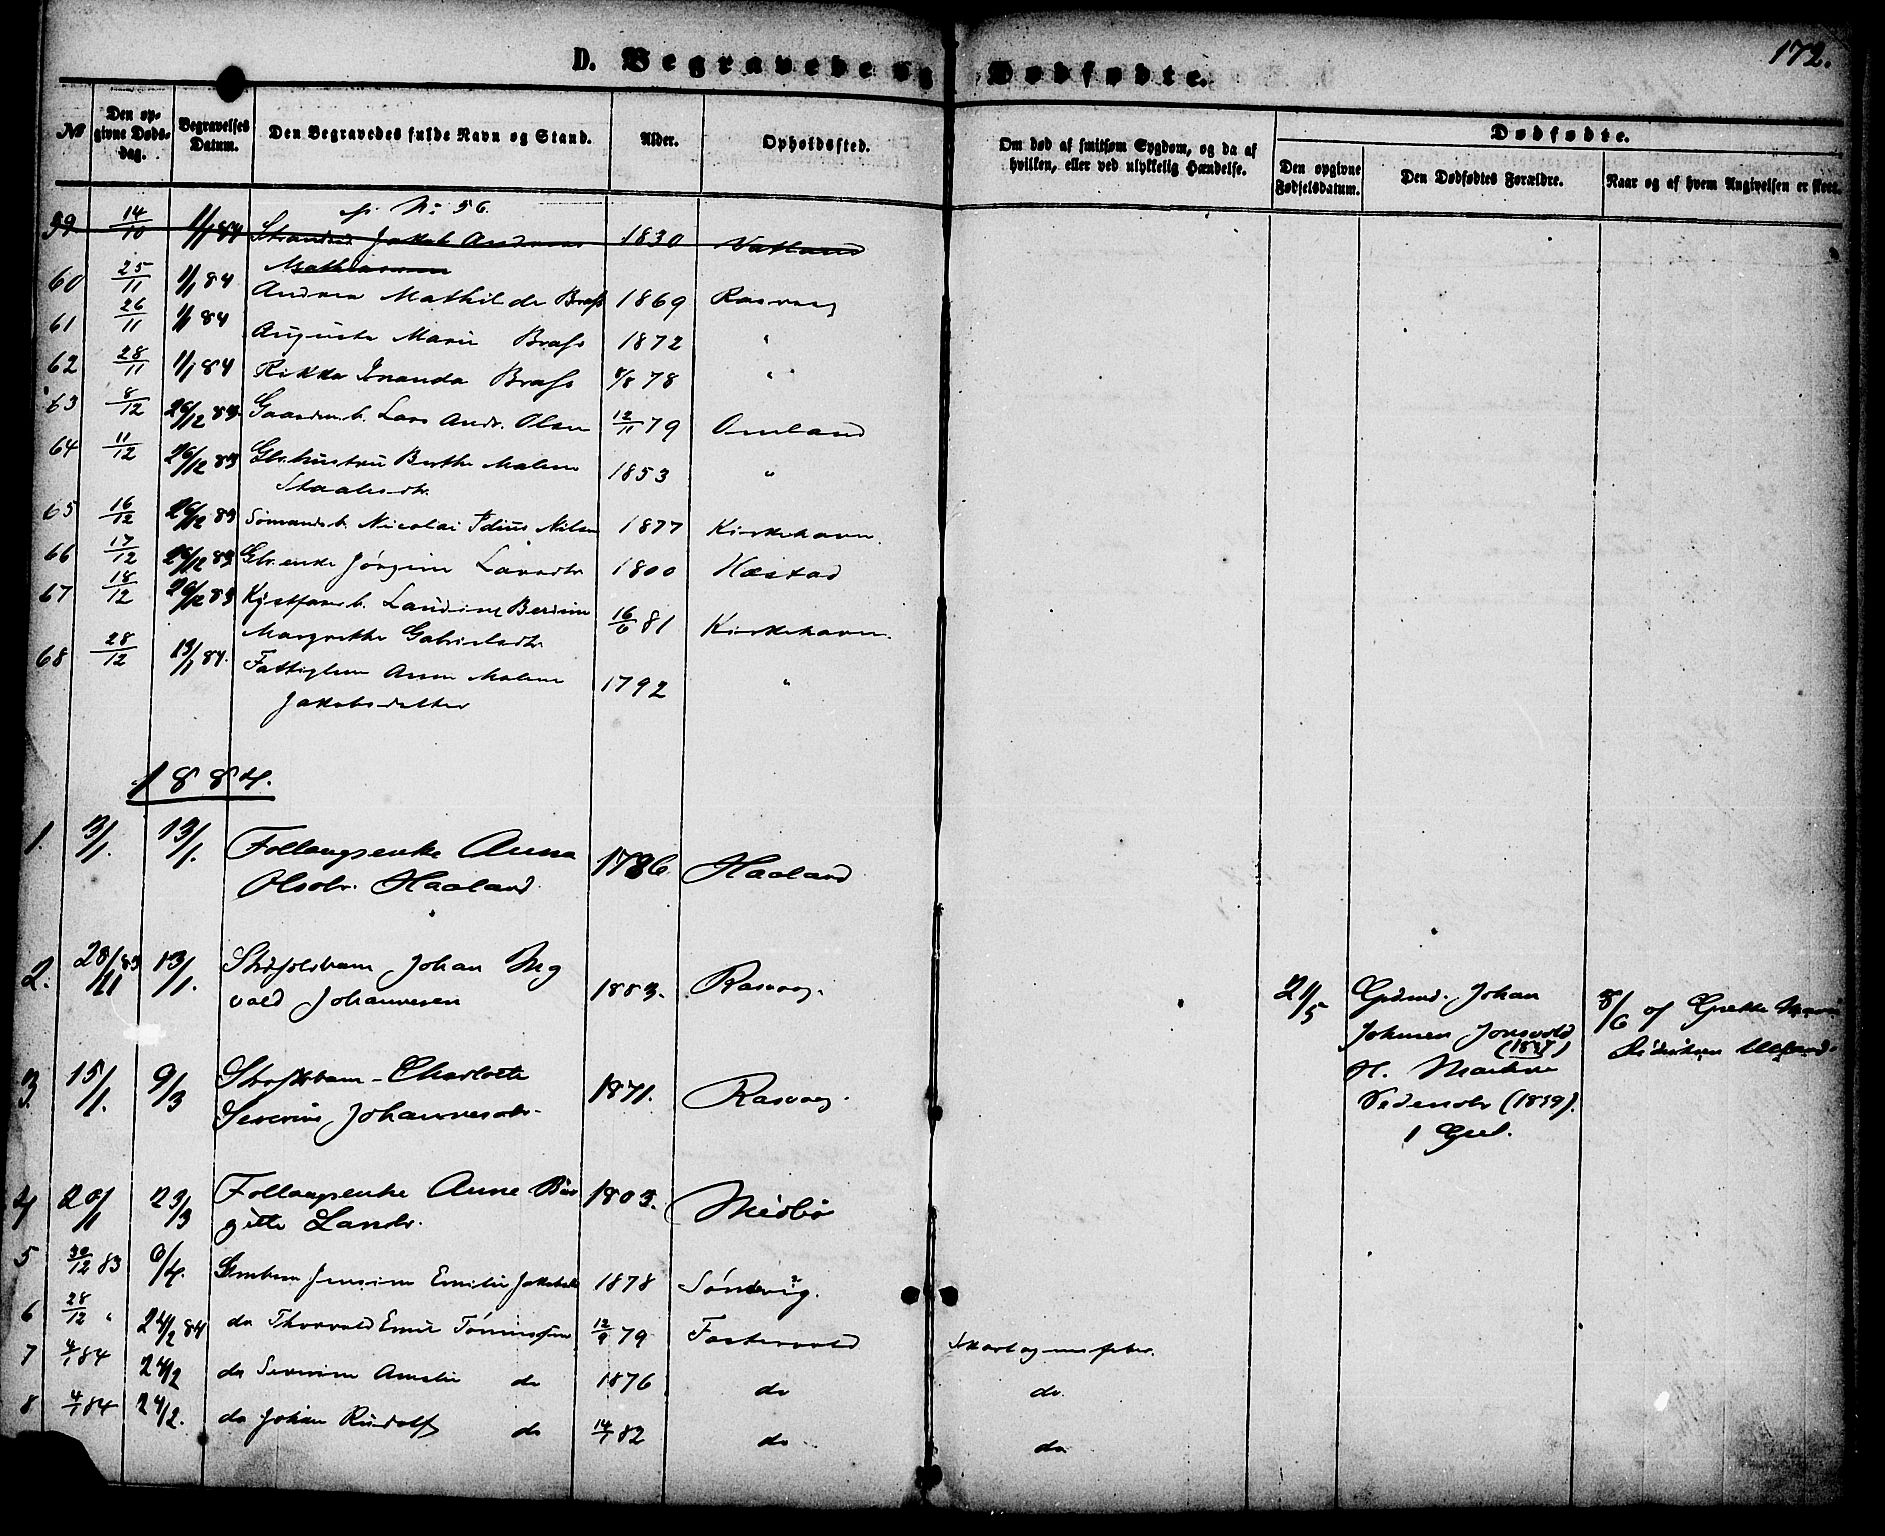 172.
D. Begravede og Dødfødte.
No
Den opgivne Dødsdag.
Begravelses Datum.
Den Begravedes fulde Navn og Stand.
Alder.
Opholdssted.
Om død af smitsom Sygdom, og da af hvilken, eller ved ulykkelig Hændelse.
Dødfødte.
Den opgivne Fødselsdatum.
Den Dødfødtes Forældre.
Naar og af hvem Angivelsen er skeet.
No 56.
59 14/10 1/1 84 Jakob Andreas 1830 Vatland
Mathiassen
60 25/11 1/1 84 Andrea Mathilde Brafs 1869 Rasvaag
61 26/11 1/1 84 Augusta Marie Brafs 1872 "
62 28/11 1/1 84 Rikka Amanda Brafs 8/8 78 "
63 8/12 26/12 83 Gaardm.b. Lars Andr. Olsen 12/11 79 Omland
64 11/12 26/12 83 Gbr.hustru Berthe Malene 1853 "
Staalesdtr.
65 16/12 26/12 83 Sømandsb. Nicolai Idius Nilsen 1877 Kirkehavn.
66 17/12 26/12 83 Gbr.enke Jørgine Larsdtr 1800 Hæstad
67 18/12 26/12 83 Laudine Berdine 16/6 81 Kirkehavn.
Margrethe Gabrielsdtr.
68 28/12 13/1 84. Fattiglem Anne Malene 1792 "
Jakobsdatter
1884.
1. 3/1. 13/1. Follaugsenke Anna 1786. Haaland
Olsdtr. Haaland.
2. 28/11 83 13/1. Johan Ingvald Johannesen 1883. Rasvog.
21/5 Gbrmd. Johan
Johnsen Jonsvold
(1837)
H. Martine
(1839).
1 Gut.
8/6 of Grethe Marie
3. 15/1. 9/3 Charlotte 1871. Rasvog.
Severine Johannesdtr.
4 20/1 23/3 Follaugsenke Anne Bir 1803. Meidbø
gitte Larsdr.
5 30/12 83 6/4. Jensine Emilie Jakobsdtr 1878 Søndvig.
6 28/12 " 24/2 84 do Thorvald Emil Tønnessen 12/9 79 Fastevold Skarlagensfeber.
7 4/1 84 24/2 do Severine Amalie do 1876 do do.
8 4/1 84 24/2. do Johan Rudolf do 14/1 82 do do